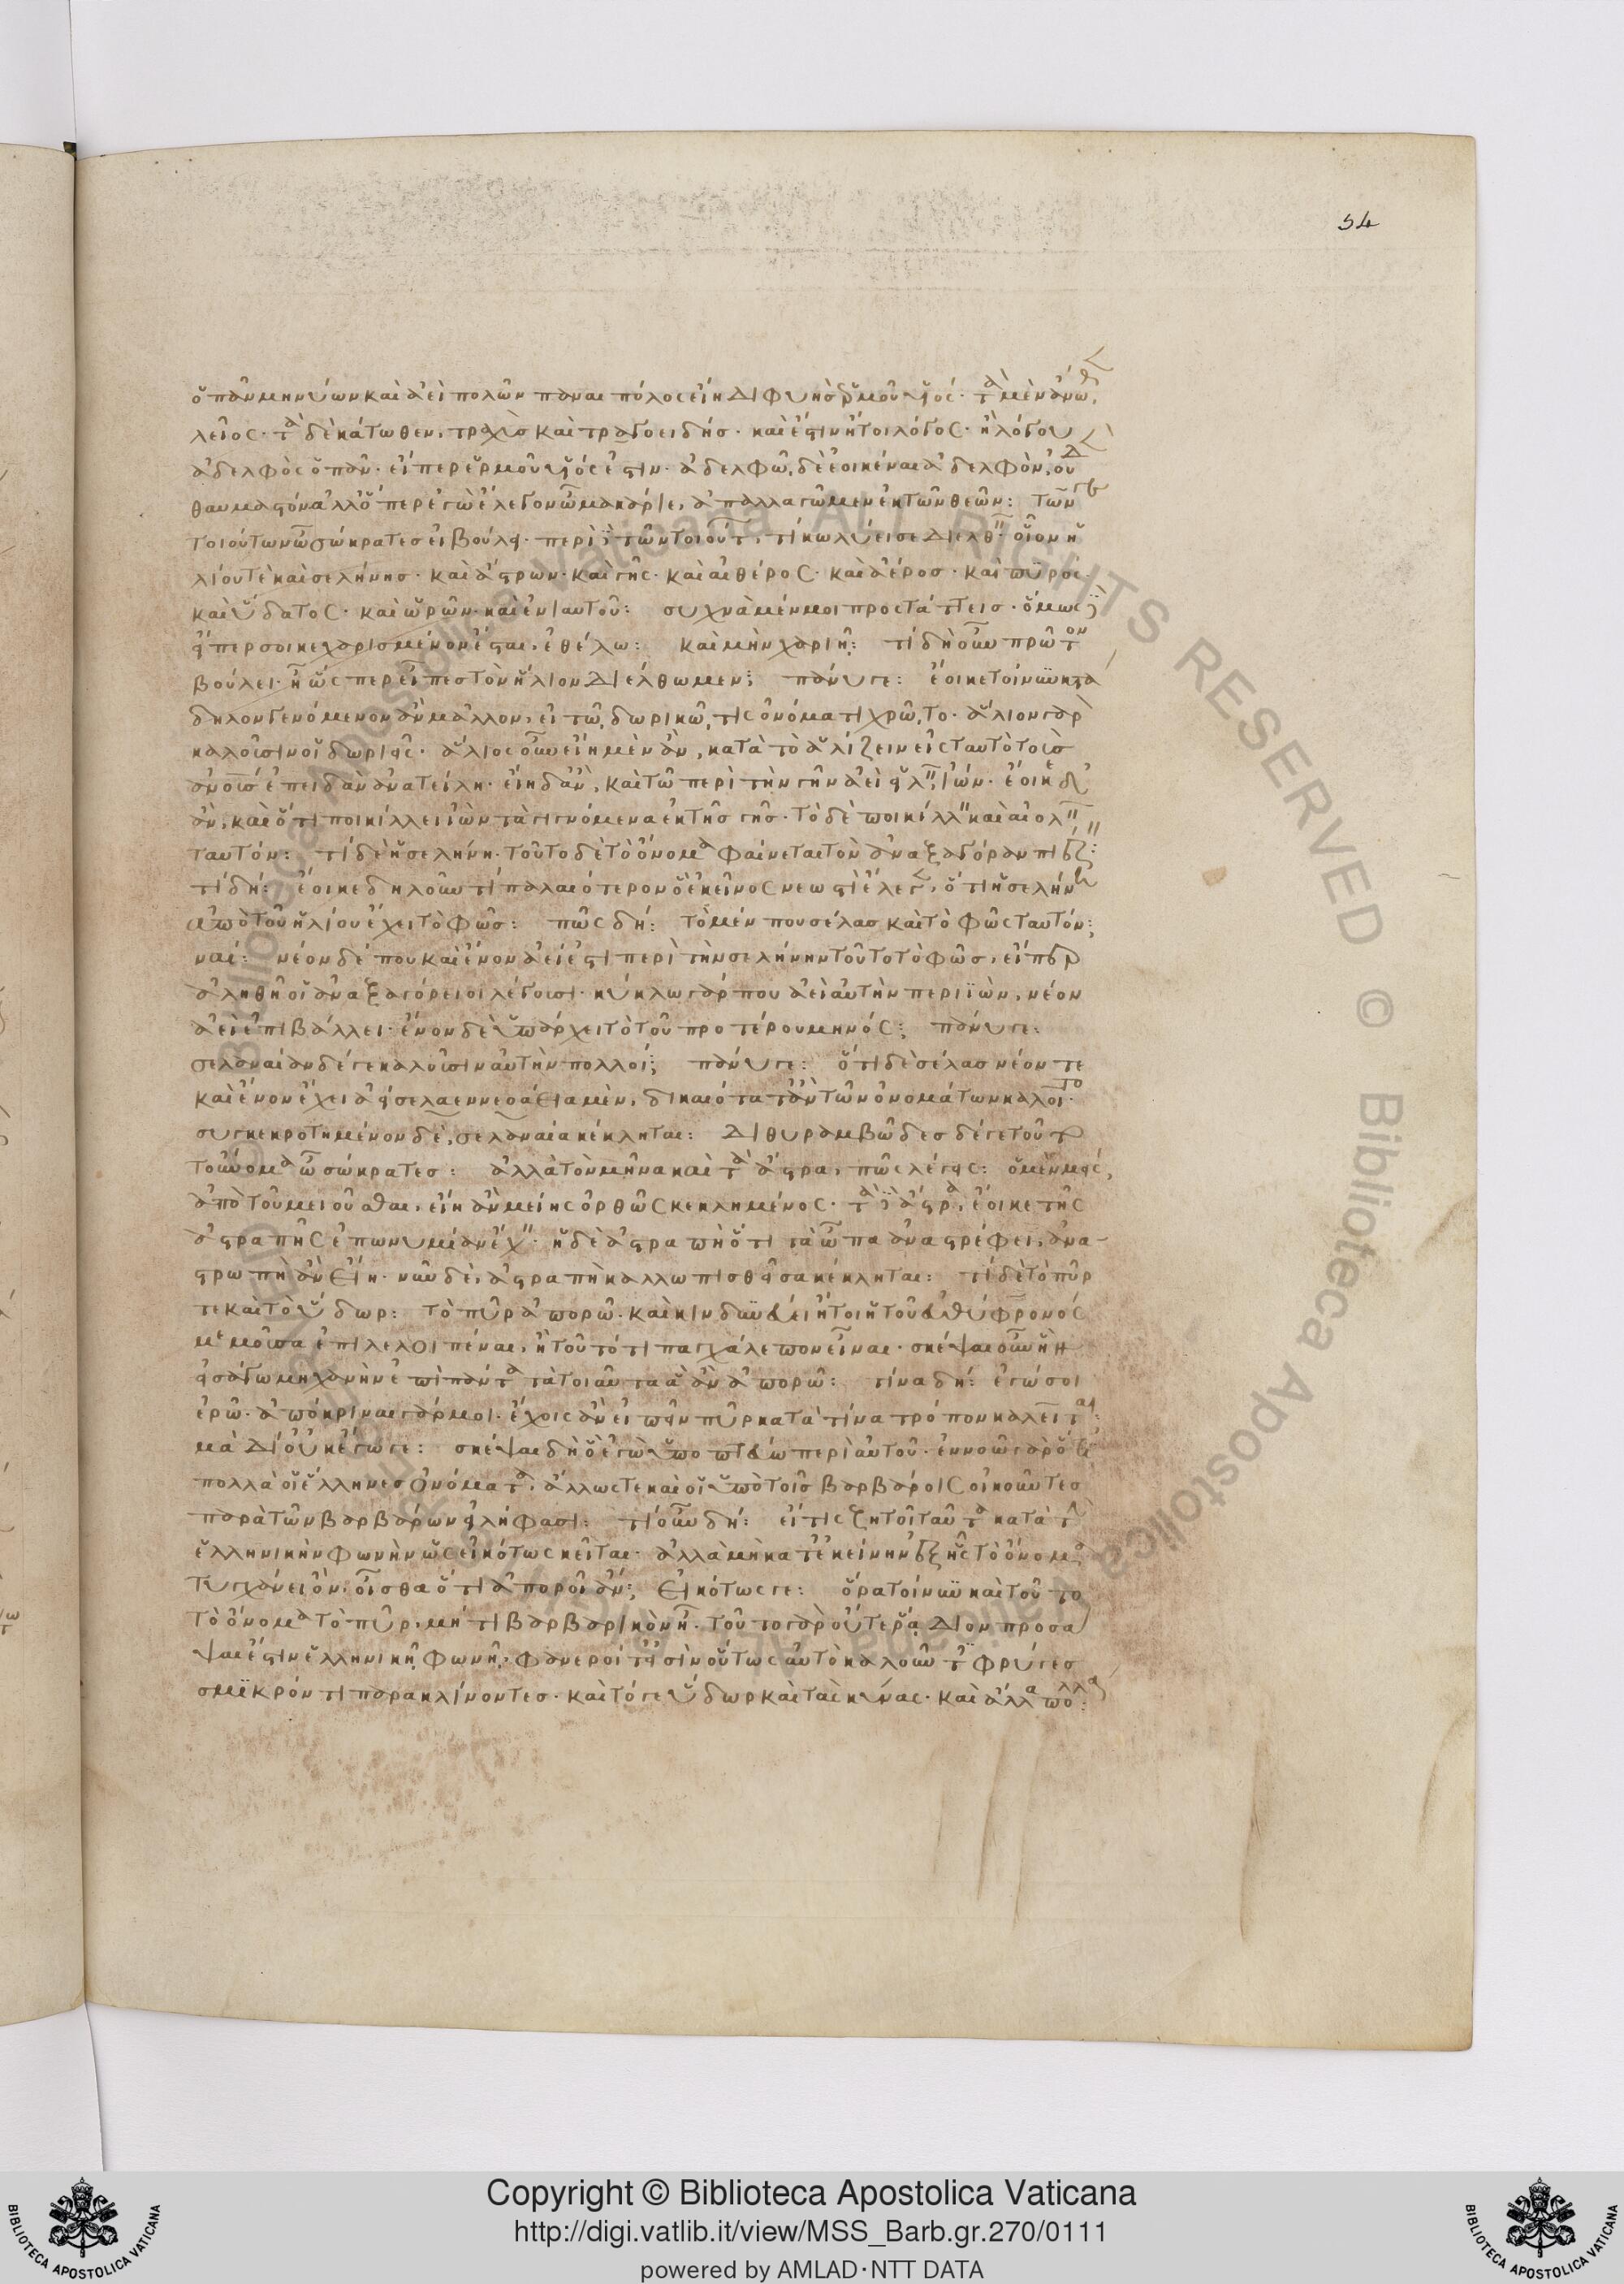 54
ὁ πᾶν μηνύων καὶ ἀεὶ πολῶν πᾶν αἰπόλος εἴη διφυὴς ἑρμοῦ υἱός· τὰ μὲν ἄνωθεν,
λεῖος· τὰ δὲ κάτωθεν, τραχὺς καὶ τραγοειδής· καὶ ἔστιν ἤτοι λόγος· ἢ λόγου
ἀδελφὸς ὁ πᾶν· εἴπερ ἑρμοῦ υἱός ἐστιν· ἀδελφῷ, δὲ ἐοικέναι ἀδελφὸν, οὐδὲν
θαυμαστόν ἀλλ᾽ ὅπερ ἐγὼ ἔλεγον ὦ μακάριε, ἀπαλλαγῶμεν ἐκ τῶν θεῶν: τῶν γε
τοιούτων ὦ σώκρατες εἰ βούλει· περὶ τῶν τοιούτ τί κωλύει σε διελθ· οἷον ἡ
λίου τὲ καὶ σελήνης· καὶ ἄστρων· καὶ γῆς· καὶ αἰθέρος· καὶ ἀέρος· καὶ πυρὸς·
καὶ ὕδατος· καὶ ὡρῶν· καὶ ἐνιαυτοῦ: συχνὰ μέν μοι προστάττεις· ὅμως δὲ
εἴπερ σοι κεχαρισμένον ἔσται, ἐθέλω: καὶ μὴν χαριῇ: τί δὴ οὖν πρῶτον
βούλει· ἢ ὥς περ εἶπες τὸν ἥλιον διέλθωμεν; πάνυ γε: ἔοικε τοίνυν κατα
δηλον γενόμενον ἂν μᾶλλον, εἰ τῷ δωρικῷ, τις ὀνόματι χρῷτο· ἅλιον γὰρ
καλοῦσιν οἱ δωριεῖς· ἅλιος οὖν εἴη μὲν ἂν, κατὰ τὸ ἁλίζειν εἰς ταυτὸ τοὺς
ἀνους ἐπειδὰν ἀνατείλῃ· εἴη δ᾽ ἂν, καὶ τῷ περὶ τὴν γῆν ἀεὶ εἱλ ἰών· ἐοίκ δ
ἂν, καὶ ὅτι ποικίλλει ἰὼν τὰ γιγνόμενα ἐκ τῆς γῆς· τὸ δὲ ποικίλλ καὶ αἰολ
ταυτόν: τί δὲ ἡ σελήνη· τοῦτο δὲ τὸ ὄνομα φαίνεται τὸν ἀναξαγόραν πιέζ:
τί δή: ἔοικε δηλοῦν τί παλαιότερον ὃ ἐκεῖνος νεωστὶ ἔλεγ, ὅτι ἡ σελήνη
ἀπὸ τοῦ ἡλίου ἔχει τὸ φῶς: πῶς δή: τὸ μέν που σέλας καὶ τὸ φῶς ταυτόν:
ναί: νέον δέ που καὶ ἕνον ἀεί ἐστι περὶ τὴν σελήνην τοῦτο τὸ φῶς, εἴπερ
ἀληθῆ οἱ ἀναξαγόρειοι λέγουσι· κύκλῳ γάρ που ἀεὶ αὐτὴν περιϊὼν, νέον
ἀεὶ ἐπιβάλλει· ἕνον δὲ ὑπάρχει τὸ τοῦ προτέρου μηνός; πάνυ γε:
σελαναίαν δέ γε καλοῦσιν αὐτὴν πολλοί; πάνυ γε: ὅτι δὲ σέλας νέον τε
καὶ ἕνον ἔχει ἀεὶ σελαεννεοάεια μὲν, δικαιότατ ἂν τῶν ὀνομάτων καλοῖτο·
συγκεκροτημένον δὲ, σελαναία κέκληται: διθυραμβῶδες δέ γε τοῦτο
τοὔνομα ὦ σώκρατες: ἀλλὰ τὸν μῆνα καὶ τὰ ἄστρα, πῶς λέγεις: ὁ μὲν μεὶς,
ἀπὸ τοῦ μειοῦσθαι, εἴη ἂν μείης ὀρθῶς κεκλημένος· τὰ δ ἄστρα, ἔοικε τῆς
ἀστραπῆς ἐπωνυμίαν ἔχ· ἡ δὲ ἀστραπὴ ὅτι τὰ ὦπα ἀναστρέφει, ἀνα-
στρωπὴ ἂν εἴη· νῦν δὲ, ἀστραπὴ καλλωπισθεῖσα κέκληται: τί δὲ τὸ πῦρ
τε καὶ τὸ ὕδωρ: τὸ πῦρ ἀπορῶ· καὶ κινδυνεύει ἤτοι ἡ τοῦ εὐθύφρονός
με μοῦσα ἐπιλελοιπέναι, ἢ τοῦτό τι παγχάλεπον εἶναι· σκέψαι οὖν ἣν
εἰσάγω μηχανὴν ἐπὶ πάντα τὰ τοιαῦτα ἃ ἂν ἀπορῶ: τίνα δή: ἐγώ σοι
ἐρῶ· ἀπόκριναι γάρ μοι· ἔχοις ἂν εἰπεῖν πῦρ κατὰ τίνα τρόπον καλεῖται:
μὰ δί οὐκ ἔγωγε: σκέψαι δὴ ὃ ἐγὼ ὑποπτεύω περὶ αὐτοῦ· ἐννοῶ γὰρ ὅτι
πολλὰ οἱ ἕλληνες ὀνόματα, ἄλλως τε καὶ οἱ ὑπὸ τοῖς βαρβάροις οἰκοῦντες
παρὰ τῶν βαρβάρων εἰλήφασι: τί οὖν δή: εἴ τις ζητοῖ ταῦτα κατὰ τὴν
ἑλληνικὴν φωνὴν ὡς εἰκότως κεῖται· ἀλλὰ μὴ κατ ἐκείνην ἐξ ἧς τὸ ὄνομα
τυγχάνει ὂν, οἶσθα ὅτι ἀποροῖ ἄν; εἰκότως γε: ὅρα τοίνυν καὶ τοῦτο
τὸ ὄνομα τὸ πῦρ, μή τι βαρβαρικὸν ᾖ· τοῦτο γὰρ οὔτε ῥᾴδιον προσα
ψαι ἐστὶν ἑλληνικῇ φωνῇ, φανεροί τ εἰσὶν οὕτως αὐτὸ καλοῦντ φρύγες
σμικρόν τι παρακλίνοντες· καὶ τό γε ὕδωρ καὶ τὰς κύνας· καὶ ἄλλα πολλα:
Copyright © Biblioteca Apostolica Vaticana
http://digi.vatlib.it/view/MSS_Barb.gr.270/0111
powered by AMLAD·NTT DATA
BIBLIOTECA APOSTOLICA VATICANA
BIBLIOTECA APOSTOLICA VATICANA